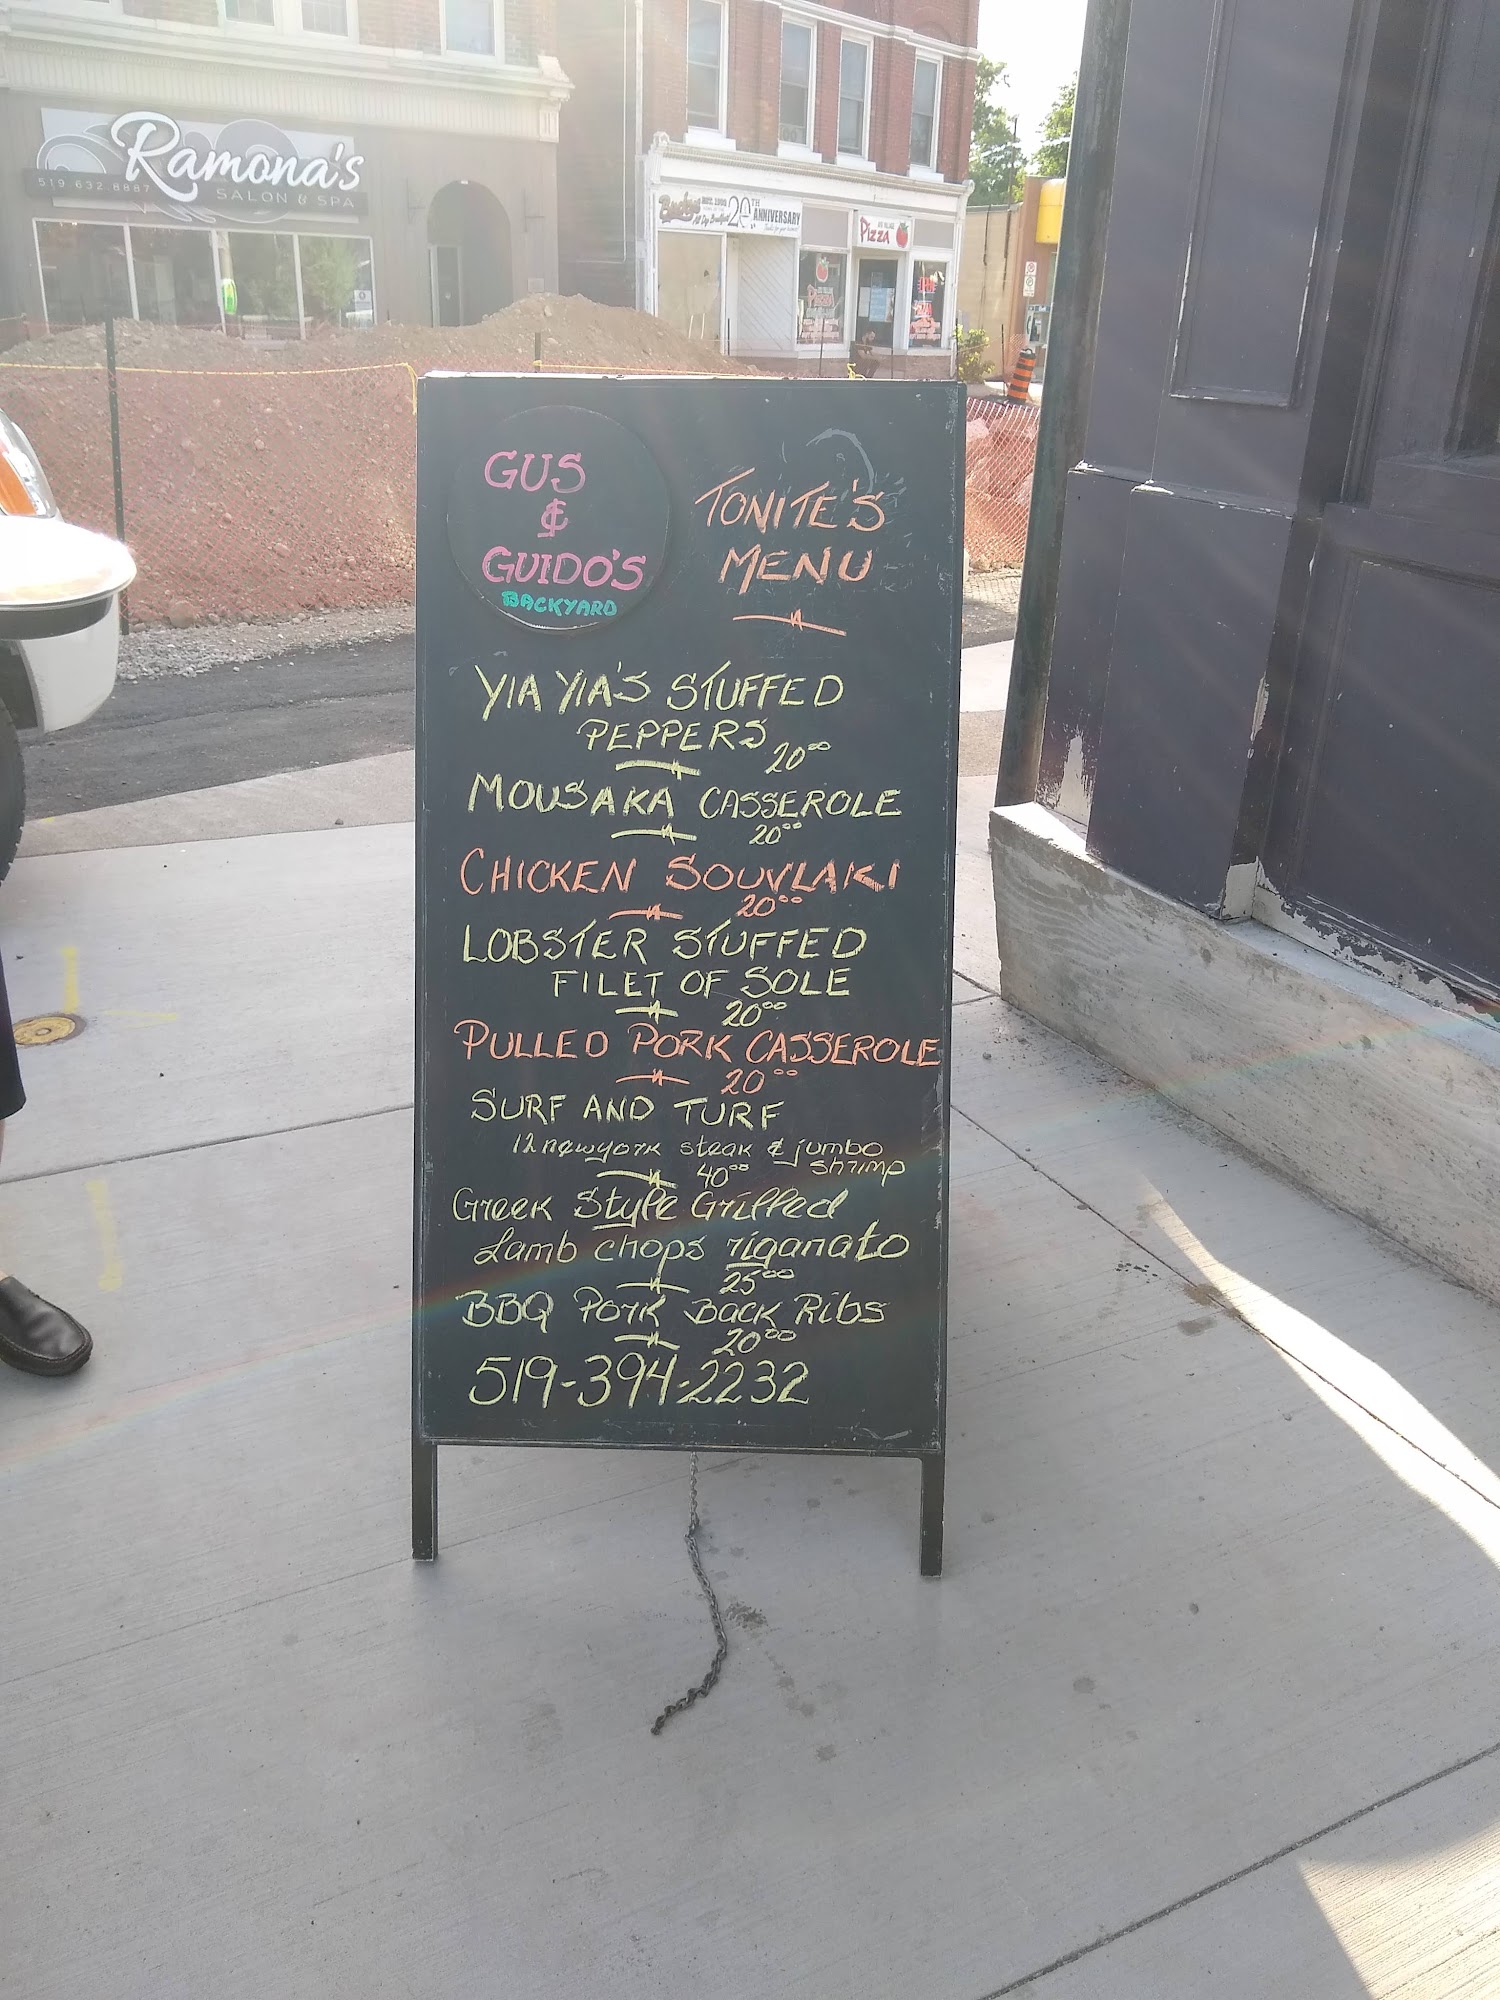 Ramona's
519.632.8887
SALON & SPA
EST. 1990
20TH
ANNIVERSARY
All Day Breakfast
Pizza
GUS
&
GUIDO'S
BACKYARD
TONITE'S
MENU
YIA YIA'S STUFFED
PEPPERS 20⁰⁰
MOUSAKA CASSEROLE
20⁰⁰
CHICKEN SOUVLAKI
20⁰⁰
LOBSTER STUFFED
FILET OF SOLE
20⁰⁰
PULLED PORK CASSEROLE
20⁰⁰
SURF AND TURF
12 newyork steak & jumbo
shrimp
40⁰⁰
Greek Style Grilled
Lamb chops riganato
25⁰⁰
BBQ Pork Back Ribs
20⁰⁰
519-394-2232